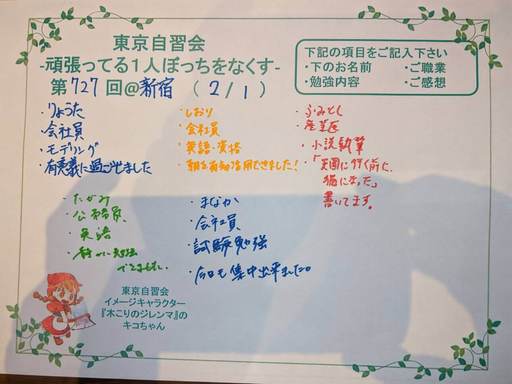 東京自習会
-頑張ってる1人ぼっちをなくす-
第727回@新宿 (2/1)
下記の項目をご記入下さい
・下のお名前 ・ご職業
・勉強内容 ・ご感想
・りょうた
・会社員
・モデリング
・有意義に過ごせました
・しおり
・会社員
・英語・資格
・朝を有効活用できました!
・ふみとし
・産業医
・小説執筆
・「天国に行く前に
猫になった」
書いてます。
・たかみ
・公務員
・英語
・静かに勉強
できました。
・まなか
・会社員
・試験勉強
・今日も集中出来ました。
東京自習会
イメージキャラクター
『木こりのジレンマ』の
キコちゃん